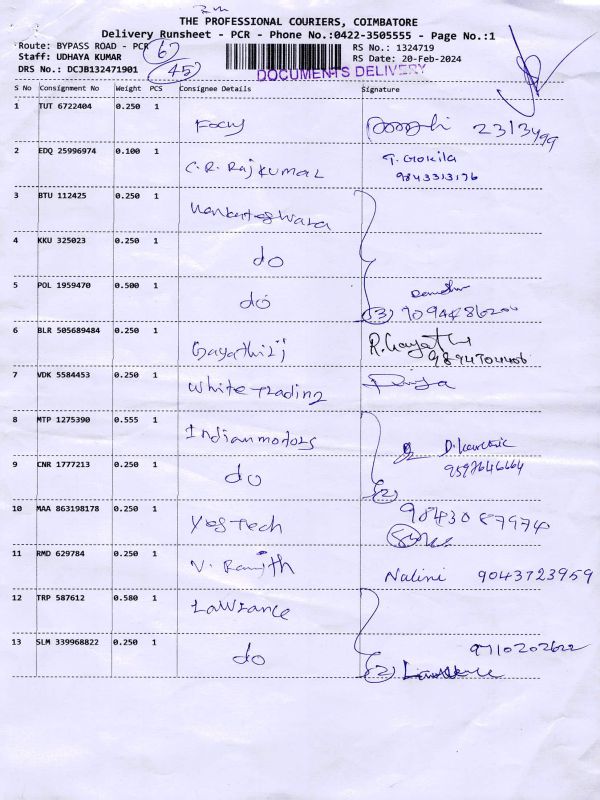 THE PROFESSIONAL COURIERS, COIMBATORE
Delivery Runsheet - PCR - Phone No.:0422-3505555 - Page No.:1
Route: BYPASS ROAD - PCR 6 RS No.: 1324719
Staff: UDHAYA KUMAR RS Date: 20-Feb-2024
DRS No.: DCJB132471901 45 DOCUMENTS DELIVERY
S No Consignment No Weight PCS Consignee Details Signature
1 TUT 6722404 0.250 1
Focus 2313499
2 EDQ 25996974 0.100 1
C.R. Rajkumar G. Gokila
9843313176
3 BTU 112425 0.250 1
Venkateshwara
4 KKU 325023 0.250 1
do
5 POL 1959470 0.500 1
do (3)
6 BLR 505689484 0.250 1
Gayathiri R. Gayathri
7 VDK 5584453 0.250 1
White Trading
8 MTP 1275390 0.555 1
Indian motors D. Karthik
9 CNR 1777213 0.250 1
do (2)
10 MAA 863198178 0.250 1
Yestech 9843087974
11 RMD 629784 0.250 1
V. Ranjith Nalini 9043723959
12 TRP 587612 0.580 1
Lawrance
13 SLM 339968822 0.250 1 9710202622
do (2) Lawrence